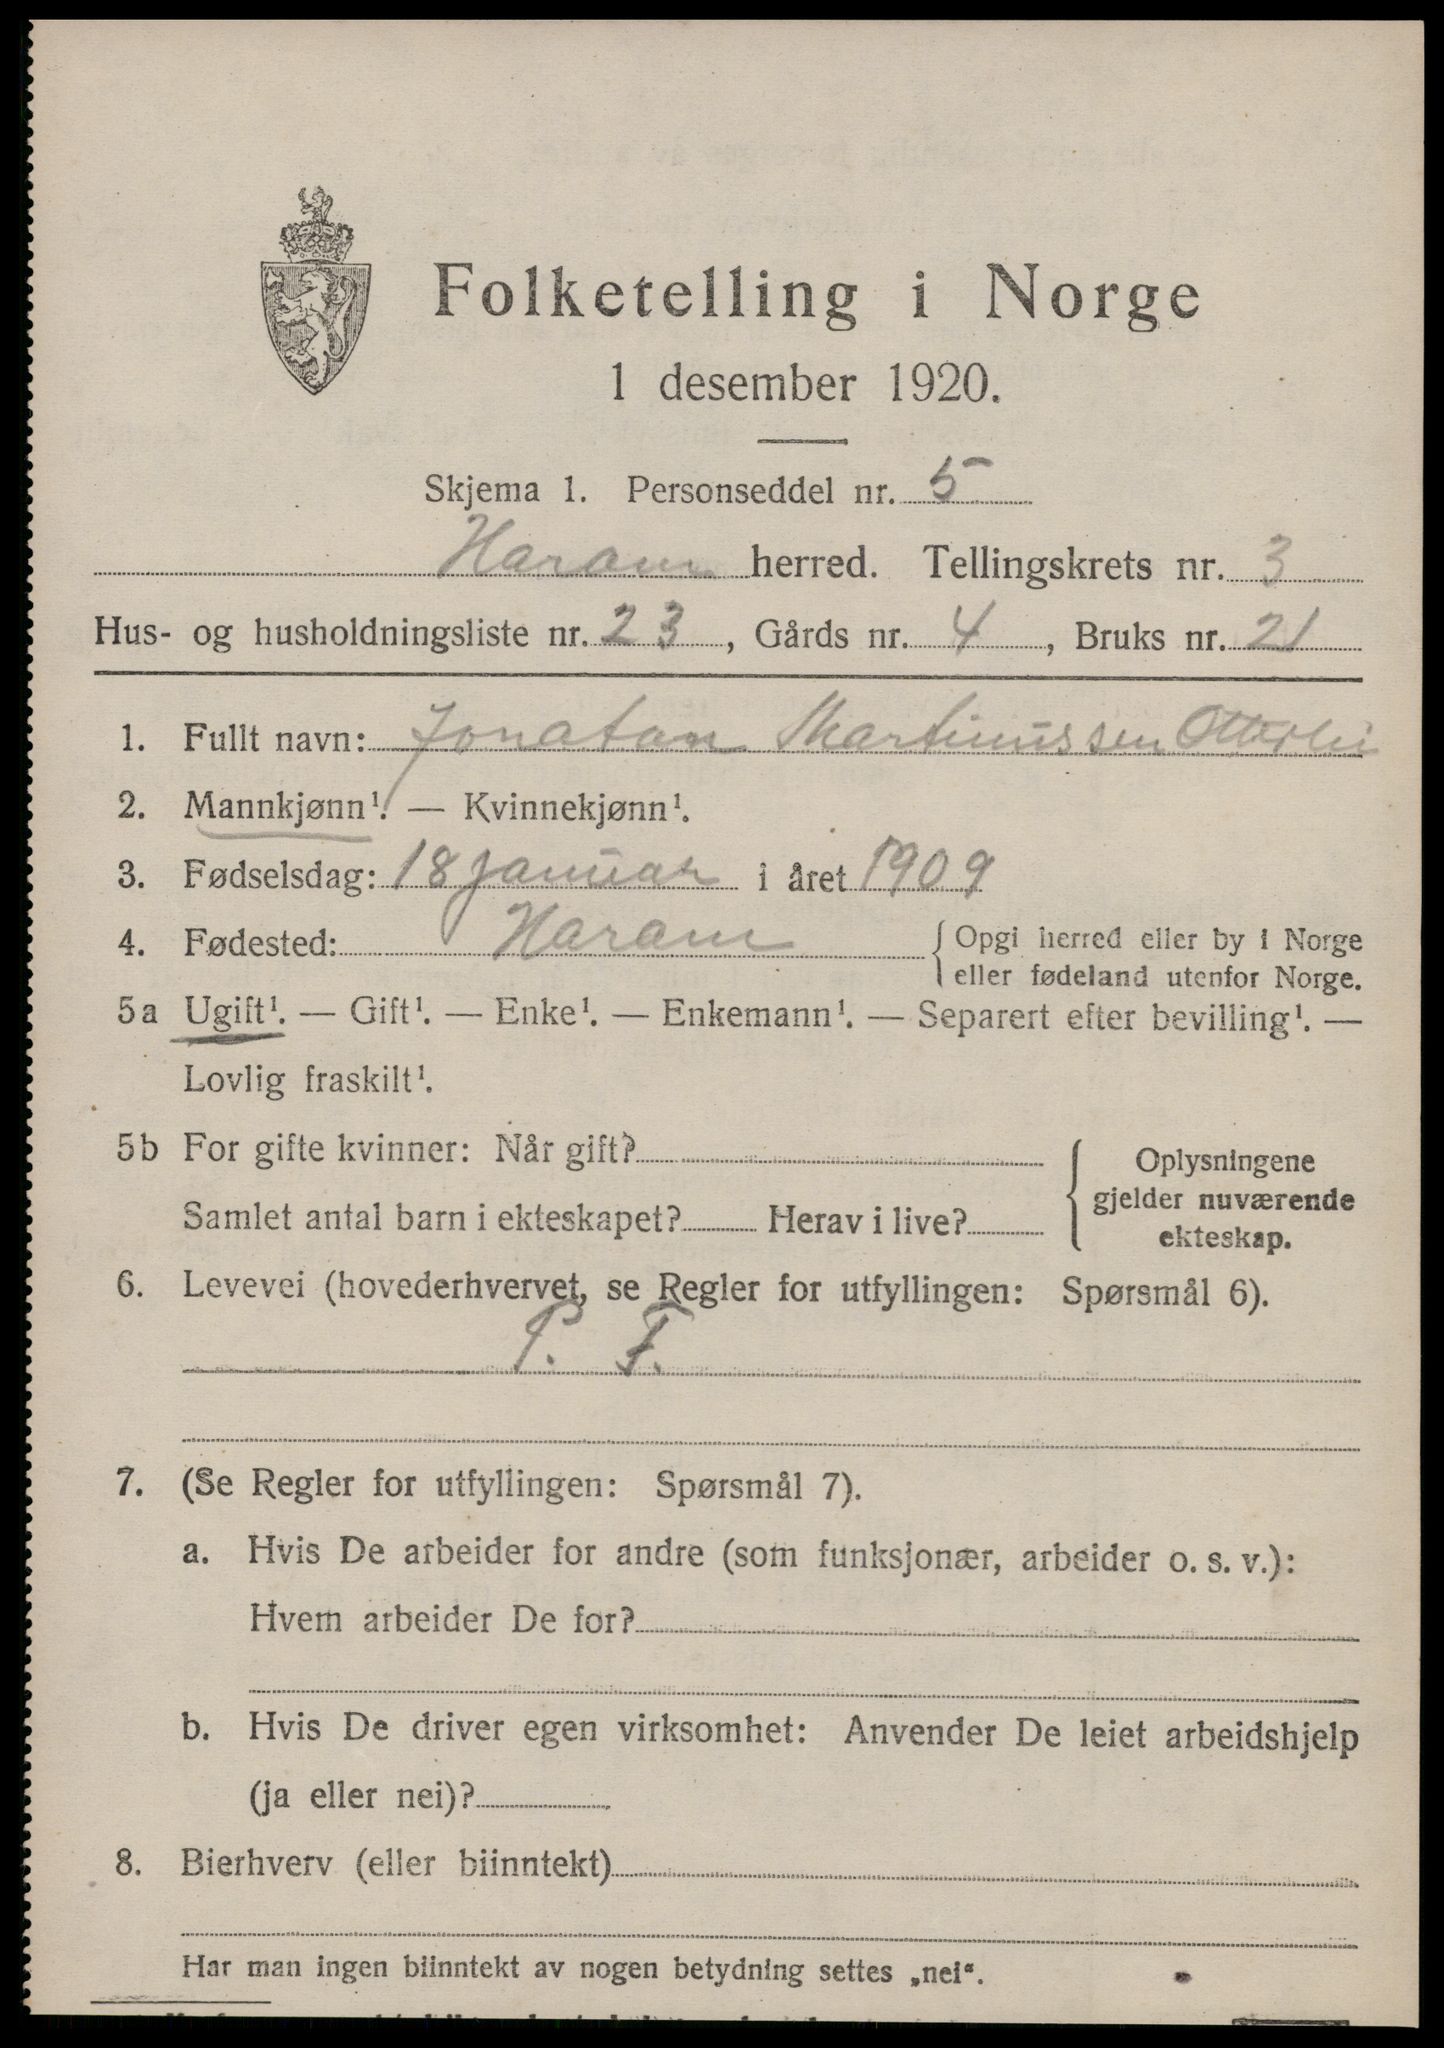 Folketelling i Norge
1 desember 1920.
Skjema 1. Personseddel nr. 5
Haram herred. Tellingskrets nr. 3
Hus- og husholdningsliste nr. 23, Gårds nr. 4, Bruks nr. 21
1. Fullt navn: Jonatan Martinussen Otterlei
2. Mannkjønn¹. — Kvinnekjønn¹.
3. Fødselsdag: 18 januar i året 1909
4. Fødested: Haram { Opgi herred eller by i Norge
eller fødeland utenfor Norge.
5a Ugift¹. — Gift¹. — Enke¹. — Enkemann¹. — Separert efter bevilling¹. —
Lovlig fraskilt¹.
5b For gifte kvinner: Når gift?
Samlet antal barn i ekteskapet? Herav i live?
{ Oplysningene
gjelder nuværende
ekteskap.
6. Levevei (hovederhvervet, se Regler for utfyllingen: Spørsmål 6).
P. F.
7. (Se Regler for utfyllingen: Spørsmål 7).
a. Hvis De arbeider for andre (som funksjonær, arbeider o. s. v.):
Hvem arbeider De for?
b. Hvis De driver egen virksomhet: Anvender De leiet arbeidshjelp
(ja eller nei)?
8. Bierhverv (eller biinntekt)
Har man ingen biinntekt av nogen betydning settes „nei“.